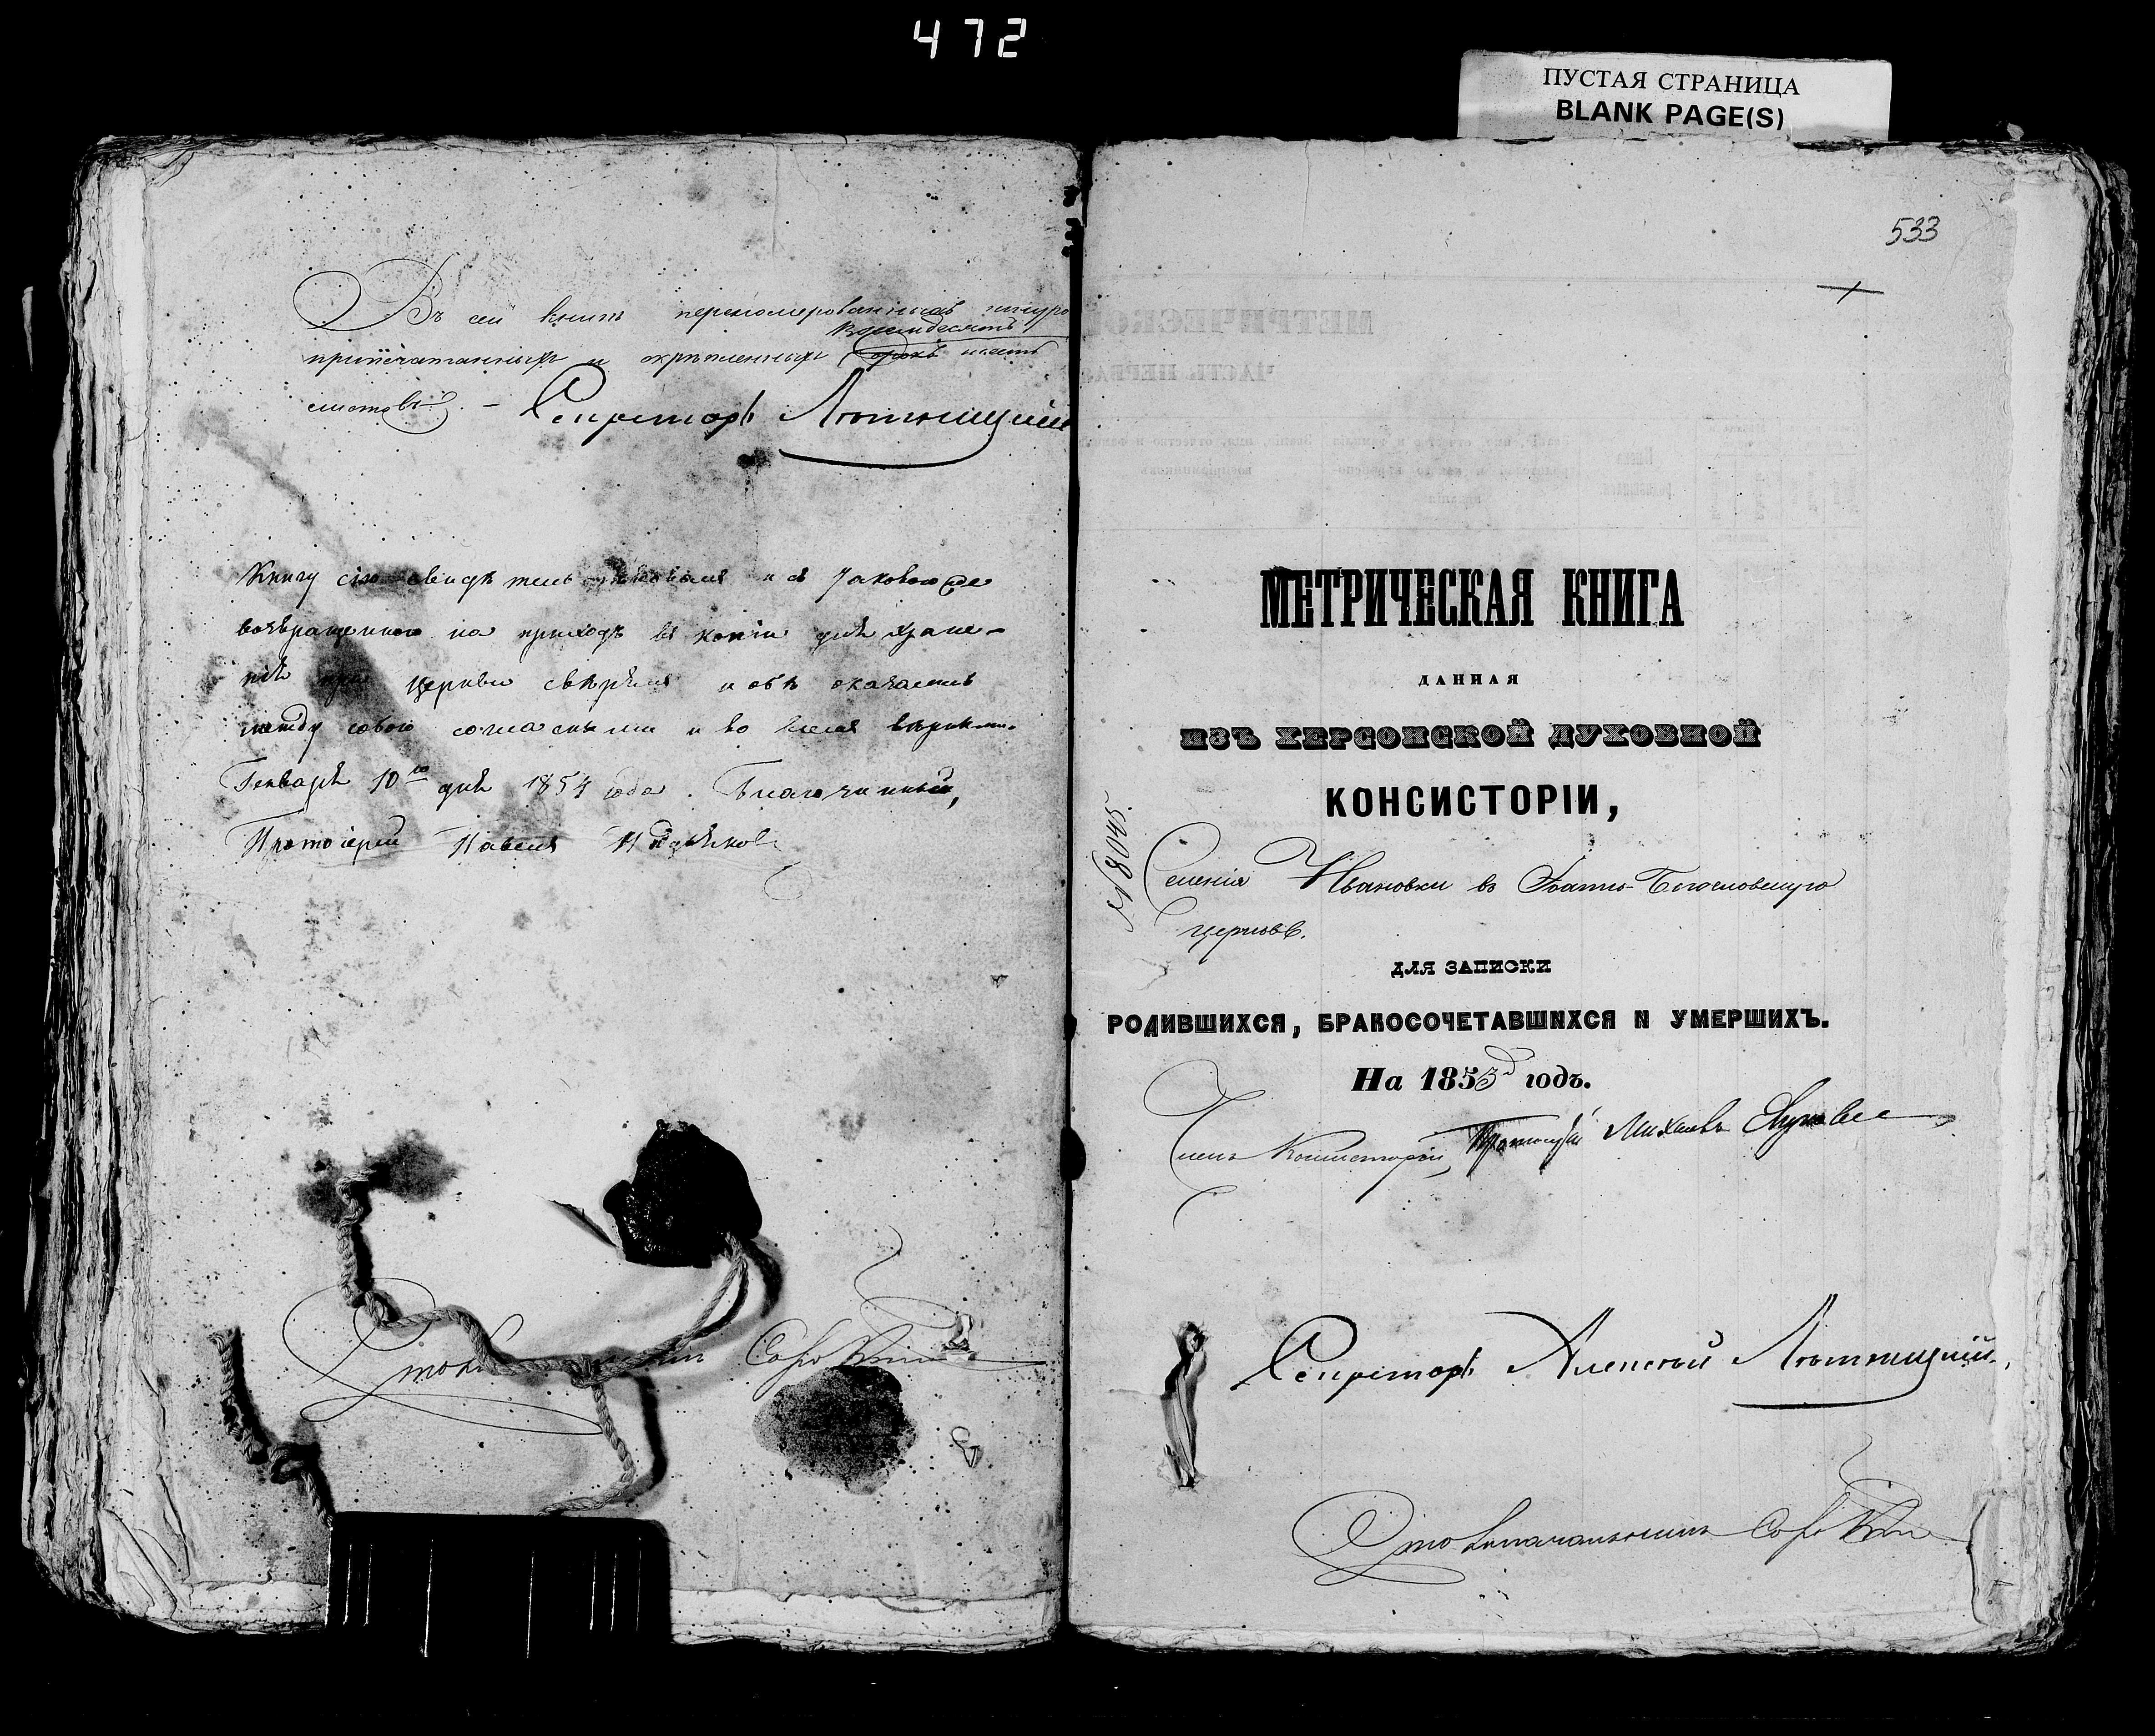 472
ПУСТАЯ СТРАНИЦА
BLANK PAGE(S)
Въ сей книгѣ переномерованныхъ шнуро
восемдесятъ
припечатанныхъ и скрѣпленныхъ сорокъ шесть
листовъ. – Секретарь
Книгу сію и съ таковою же
возвращенною на приходъ въ копіи для хране-
нія при церкви свѣрялъ и обѣ оказались
между собою согласными и во всемъ вѣрными.
Генваря 10го дня 1854 года. Благочинный,
Протоіерей Павелъ
533
МЕТРИЧЕСКАЯ КНИГА
ДАННАЯ
ИЗЪ ХЕРСОНСКОЙ ДУХОВНОЙ
КОНСИСТОРІИ,
№ 8045.
Селенія Ивановки въ Іоанно-Богословскую
церковь.
ДЛЯ ЗАПИСКИ
РОДИВШИХСЯ, БРАКОСОЧЕТАВШИХСЯ И УМЕРШИХЪ.
На 1853й годъ.
Членъ Консисторіи, Протоіерей Михаилъ
Секретарь Алексѣй
Столоначальникъ